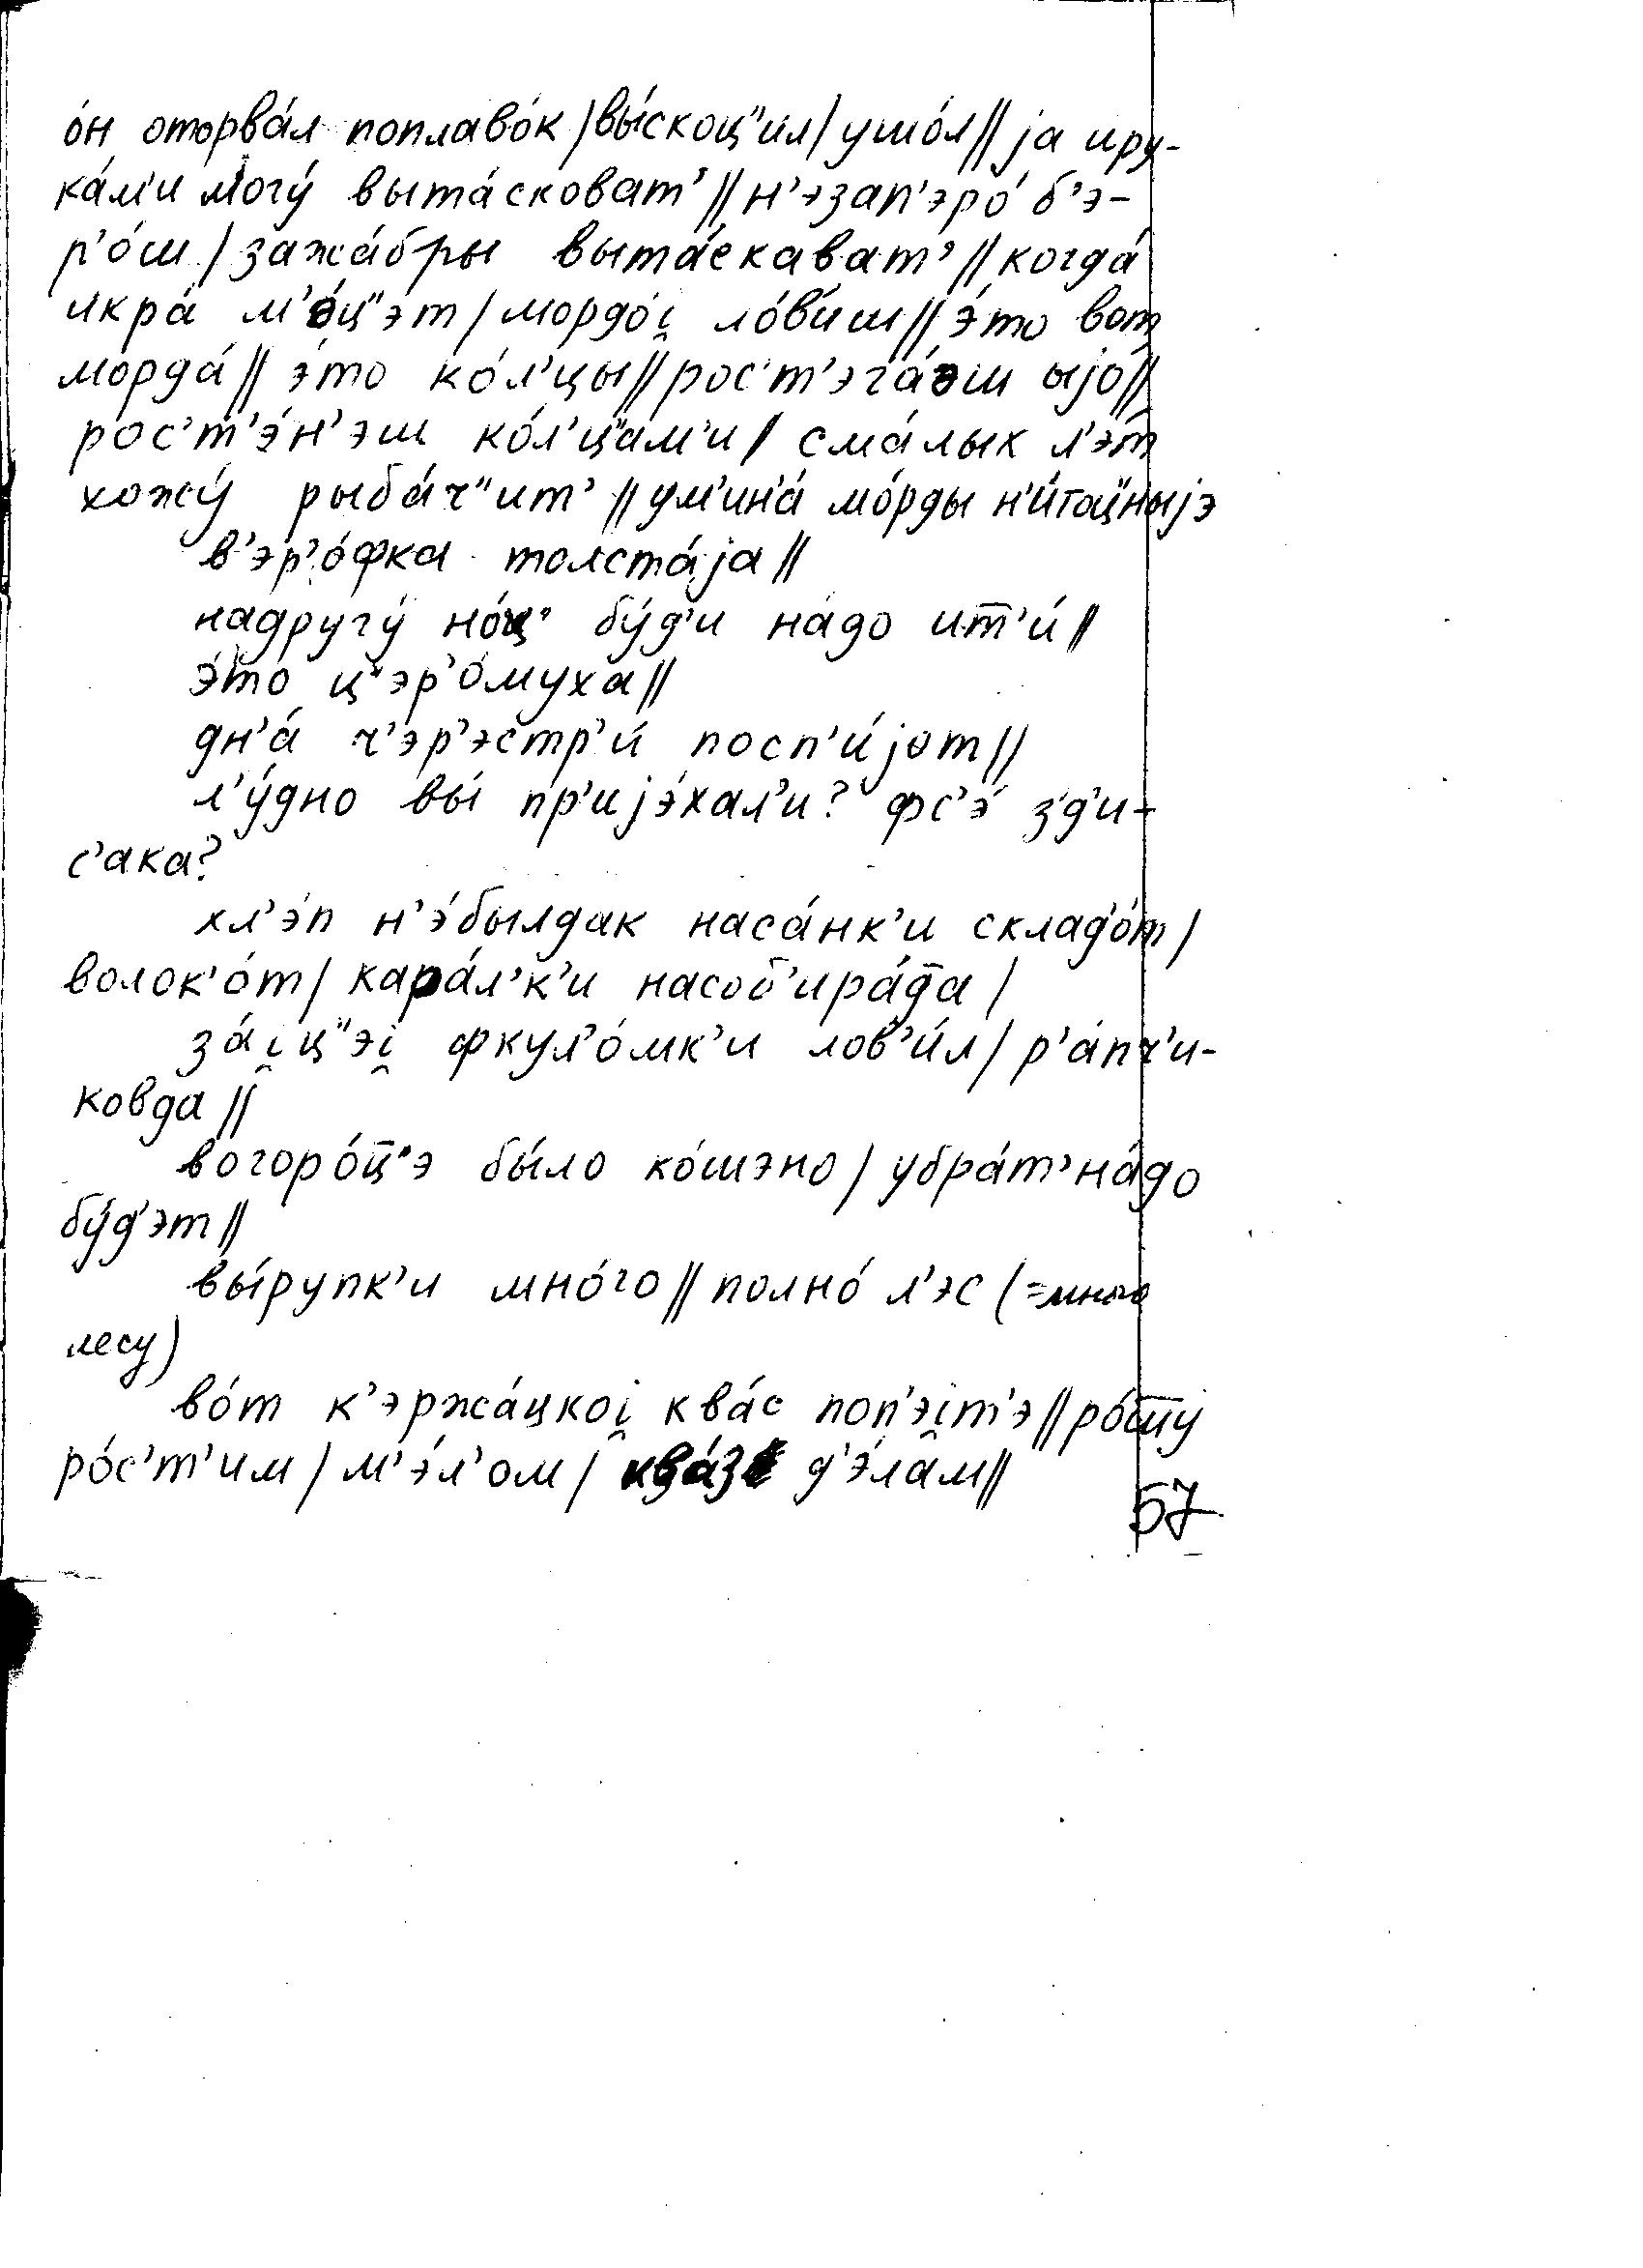 о́н оторва́л поплаво́к/вы́скоц"ил/ушо́л//jа иру-
ка́м'и могу́ выта́сковат'//н'эзап'эро́ б'э-
р'о́ш/зажа́бры выта́скават'//когда́
икра́ м'э́ц"эт/мордо́i̯ ло́виш//э́то вот
морда́//э́то ко́л'цы//рос'т'эга́эш ыjо́//
рос'т'э́н'эш ко́л'ц"ам'и/ сма́лых л'э́т
хожу́ рыба́ч"ит'//ум'ин'а́ мо́рды н'и́тац"ныjэ
в'эр'о́фка толста́jа//
надругу́ но́ц" бу́д'и на́до ит̅'и́//
э́то ц"эр'о́муха//
дн'а́ ч'эр'эстр'и́ посп'и́jот//
л'у́дно вы́ пр'иjэ́хал'и? фс'э́ з'д'и-
с'ака?
хл'э́п н'э́былдак наса́нк'и склад'о́т/
волок'о́т/кара́л'к'и насоб'ира́т̅а/
за́i̯ц"эi̯ фкул'о́мк'и лов'и́л/р'а́пч'и-
ковда//
вогоро́ц̅"э бы́ло ко́шэно/убра́т'на́до
бу́д'эт//
вы́рупк'и мно́го//полно́ л'эс (=много
лесу)
во́т к'эржа́цкоi̯ ква́с поп'эi̯т'э//ро́ш̅у
ро́с'т'им/м'э́л'ом/ ква́з д'э́лам//
57